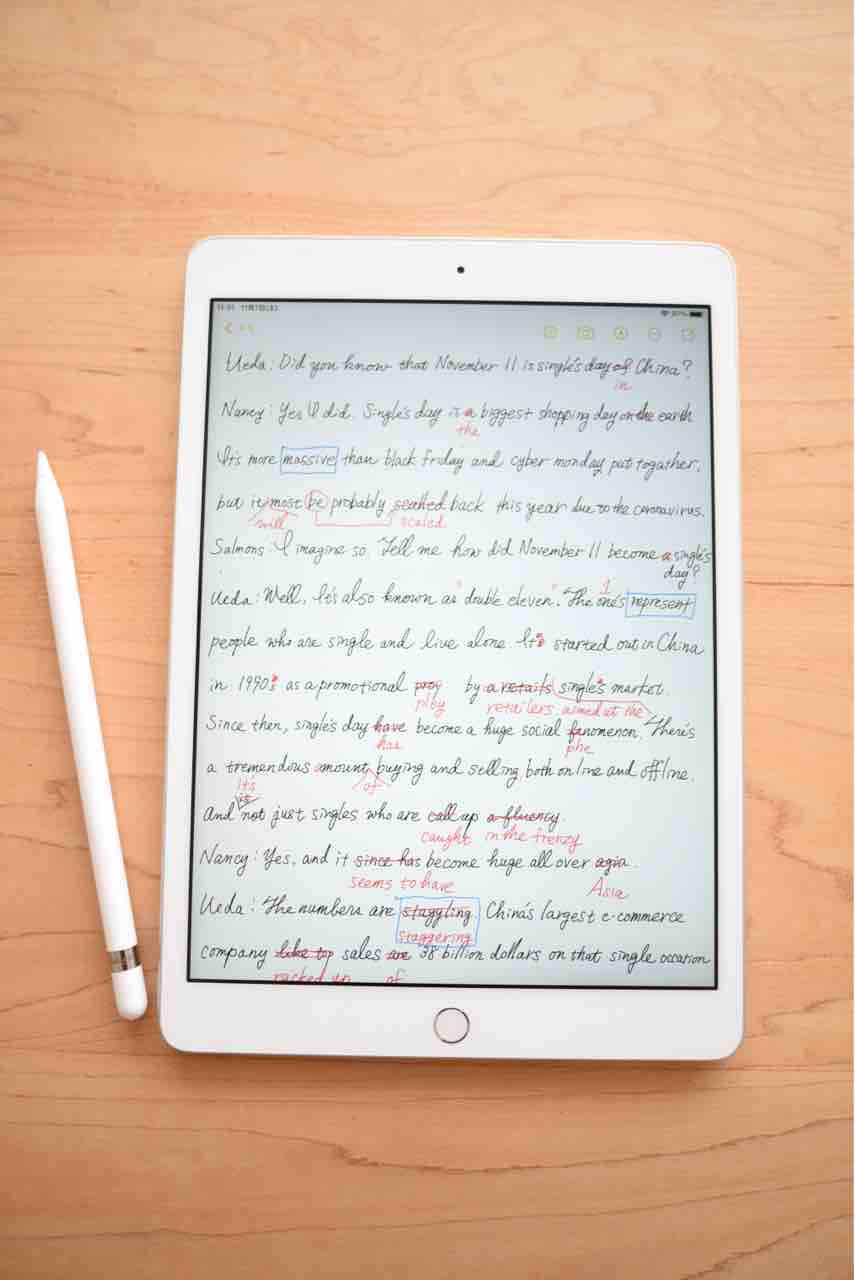 Ueda: Did you know that November 11 is single's day of China?
in
Nancy: Yes I did. Single's day is a biggest shopping day on the earth
the
It's more massive than black friday and cyber monday put togather.
but it most be probably sealled back this year due to the coronavirus.
will scaled
Salmons: I imagine so. Tell me how did November 11 become a single's
day?
1
Ueda: Well, It's also known as "double eleven". The one's represent
people who are single and live alone. It's started out in China
in 1990's as a promotional proy by a retails single's market.
ploy retailers aimed at the
Since then, single's day have become a huge social fanomenon. There's
has phe
a tremendous amount buying and selling, both online and offline.
It's of
is
And not just singles who are call up a fluency.
caught in the frenzy
Nancy: Yes, and it since has become huge all over agia.
seems to have Asia
Ueda: The numbers are staggling. China's largest e-commerce
staggering
company like top sales are 38 billion dollars on that single occation
racked up of